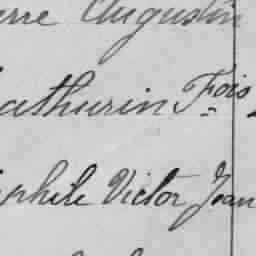 erre Augustin
athurin Fois
phile Victor Jean